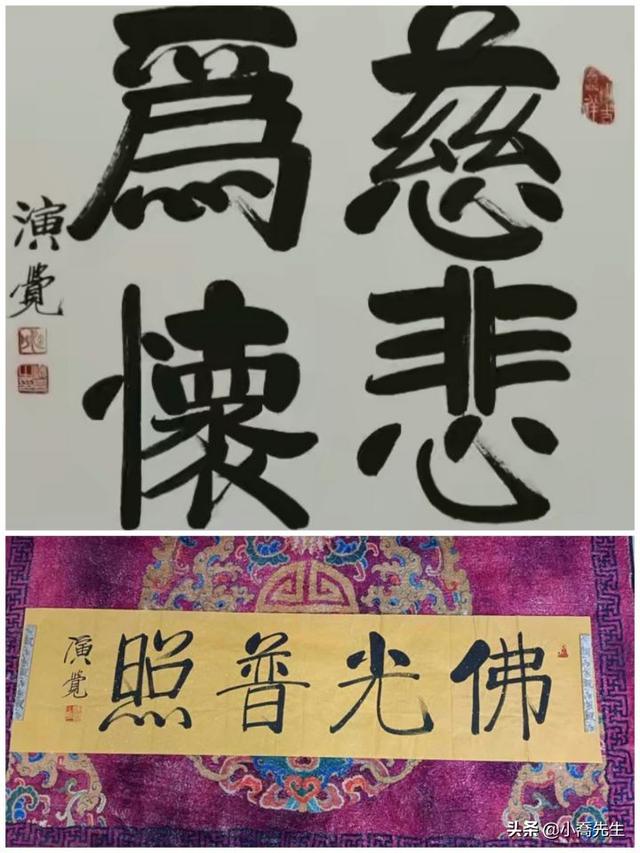 慈悲
爲懷
演覺
佛光普照
演覺
头条 @小喬先生